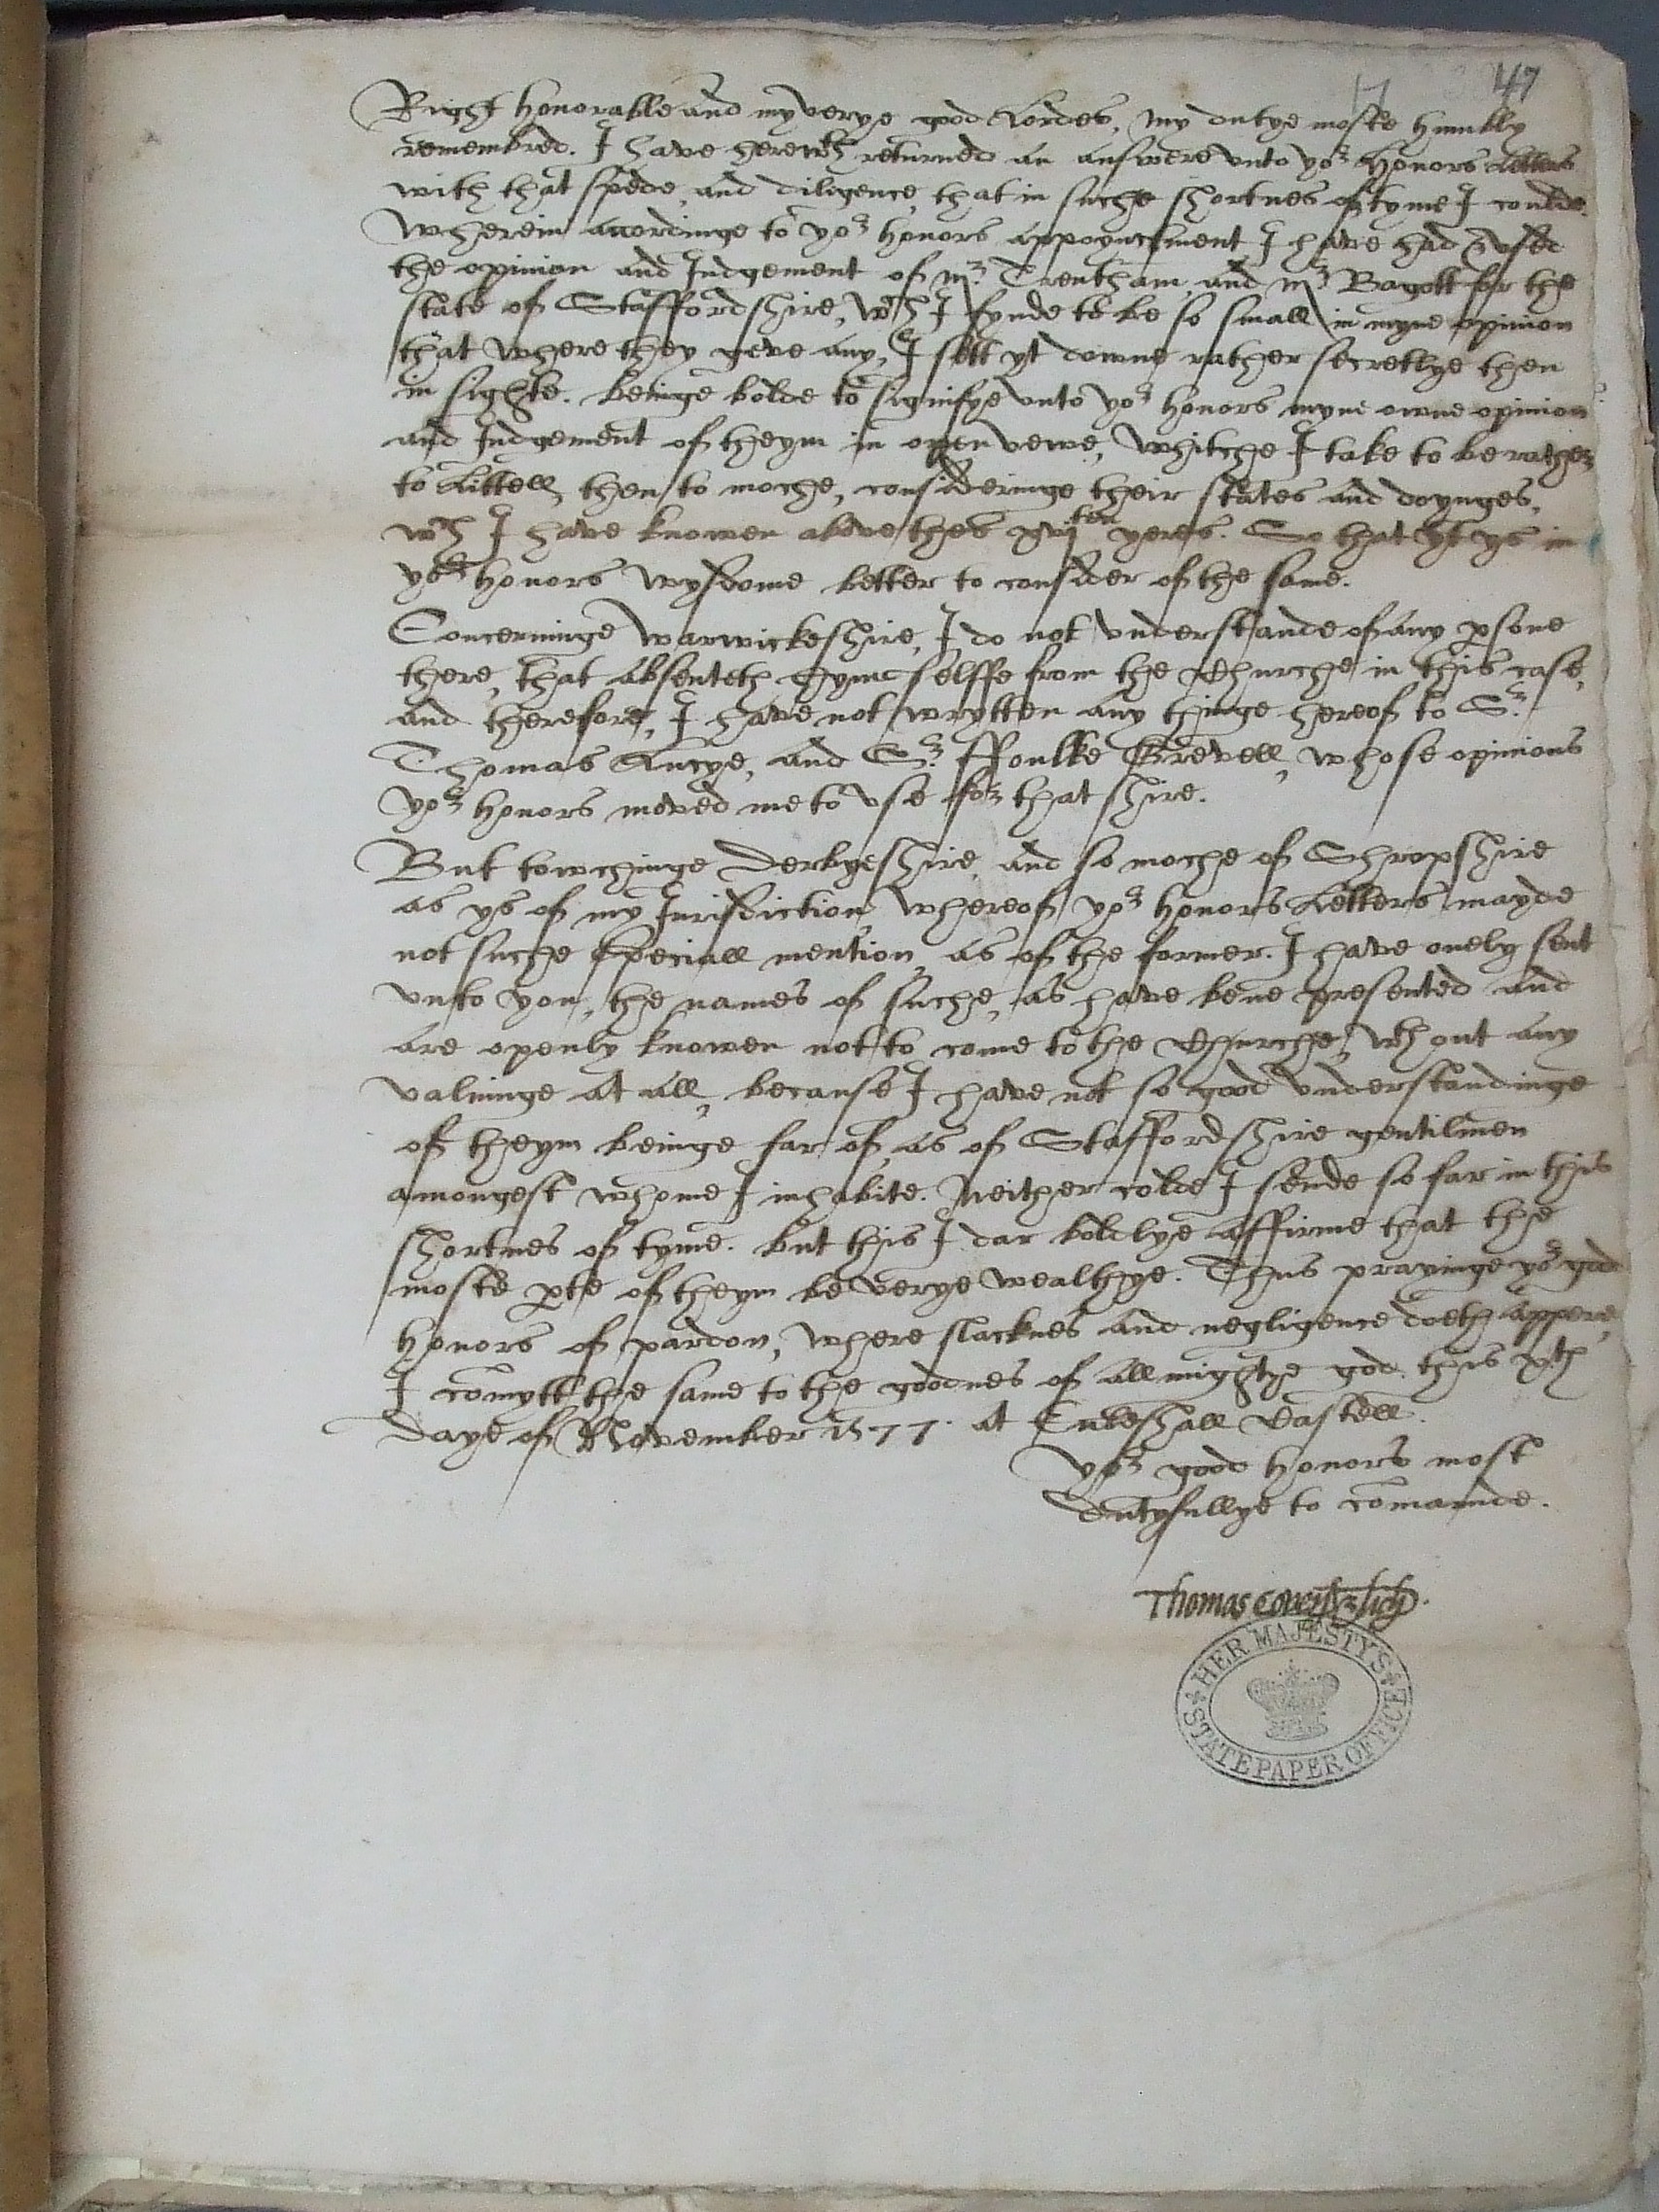 47
Right honorable and my verye good Lordes, my dutye moste humbly
remembred. I have herewth returned an answere unto yor Honors Letters
with that spede, and diligence, that in suche shortnes of tyme I coulde.
Wherein accordinge to yor honors appoynctment I have had & used
the opinion and Judgement of mr. Trentham, and mr Bagott for the
state of Staffordshire, wch I fynde to be so small in myne opinion
that where they geve any, I sett yt downe rather secretlye then
in sighte. beinge bolde to signifye unto yor honors myne owne opinion
and Judgement of theym in open vewe, whitche I take to be rather
to Littell, then to moche, consideringe their states and doynges,
wch I have knowen above thes xviten yeres. So that yt ys in
yor honors wysdome better to consider of the same.
Concerninge Warwickeshire, I do not understande of any psone
there, that absenteth hym selffe from the Churche in this case,
and therefore, I have not wrytten any thinge hereof to Sr.
Thomas Lucye, and Sr. ffoulke Grevell, whose opinions
yor honors moved me to use for that shire.
But towchinge Derbyeshire, and so moche of Shropshire
as ys of my Jurisdiction, whereof yor honors Letters mayde
not suche speciall mention, as of the former. I have onely sent
unto you, the names of suche, as have bene presented and
are openly knowen not to come to the Churche, wthout any
valuinge at all, because I have not so good understandinge
of theym beinge far of, as of Staffordshire gentilmen
amongest whome I inhabite. Neither colde I sende so far in this
shortnes of tyme. but this I dar boldlye affirme that the
moste pte of theym be verye wealthye. Thus prayinge yor good
honors of pardon, where slacknes and negligence doeth appere,
I comytt the same to the goodnes of allmightye god. this xth
Daye of November 1577. at Eccleshall Castell.
Yor good honors most
Dutyfullye to comaunde.
Thomas Coven & Lich.
HER MAJESTYS
STATE PAPER OFFICE